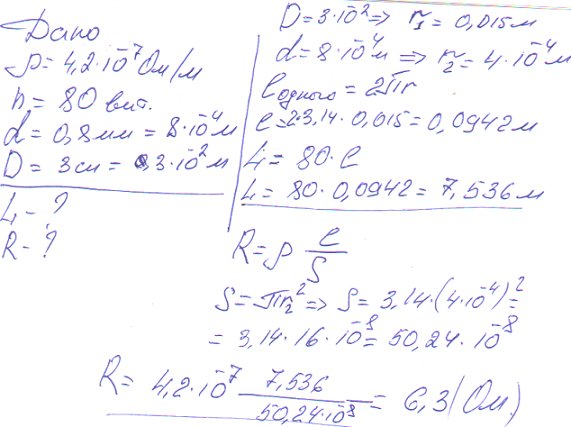 Дано
ρ = 4,2·10⁻⁷ Ом/м
n = 80 вит.
d = 0,8мм = 8·10⁻⁴м
D = 3см = 3·10⁻²м
L - ?
R - ?
D = 3·10⁻² => r₁ = 0,015м
d = 8·10⁻⁴м => r₂ = 4·10⁻⁴м
ℓодного = 2πr
ℓ = 2·3,14·0,015 = 0,0942м
L = 80·ℓ
L = 80·0,0942 = 7,536м
R = ρ ℓ/S
S = πr₂² => S = 3,14·(4·10⁻⁴)² =
= 3,14·16·10⁻⁸ = 50,24·10⁻⁸
R = 4,2·10⁻⁷ 7,536/50,24·10⁻⁸ = 6,3(Ом)